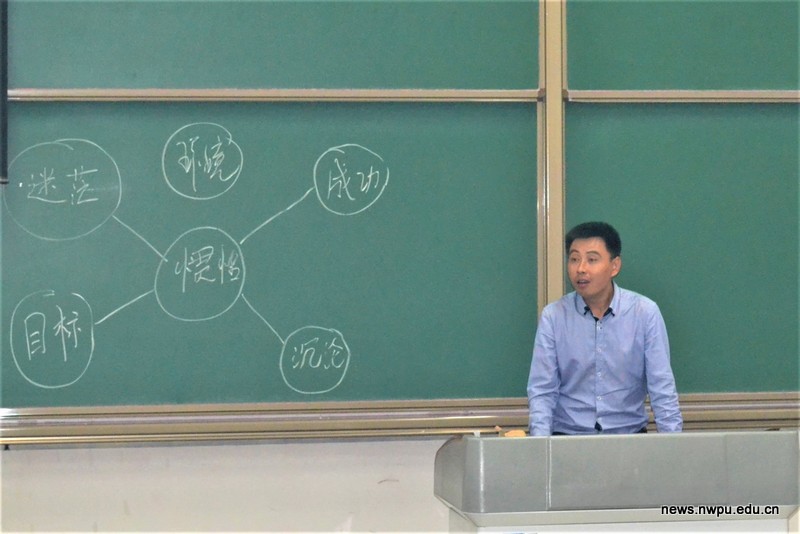 迷茫
环境
成功
惯性
目标
沉沦
news.nwpu.edu.cn